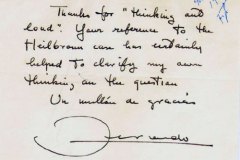 Thanks for "thinking and
load". Your reference to the
Heilbronn case has certainly
helped to clarify my own
thinking on the question
Un millón de gracias